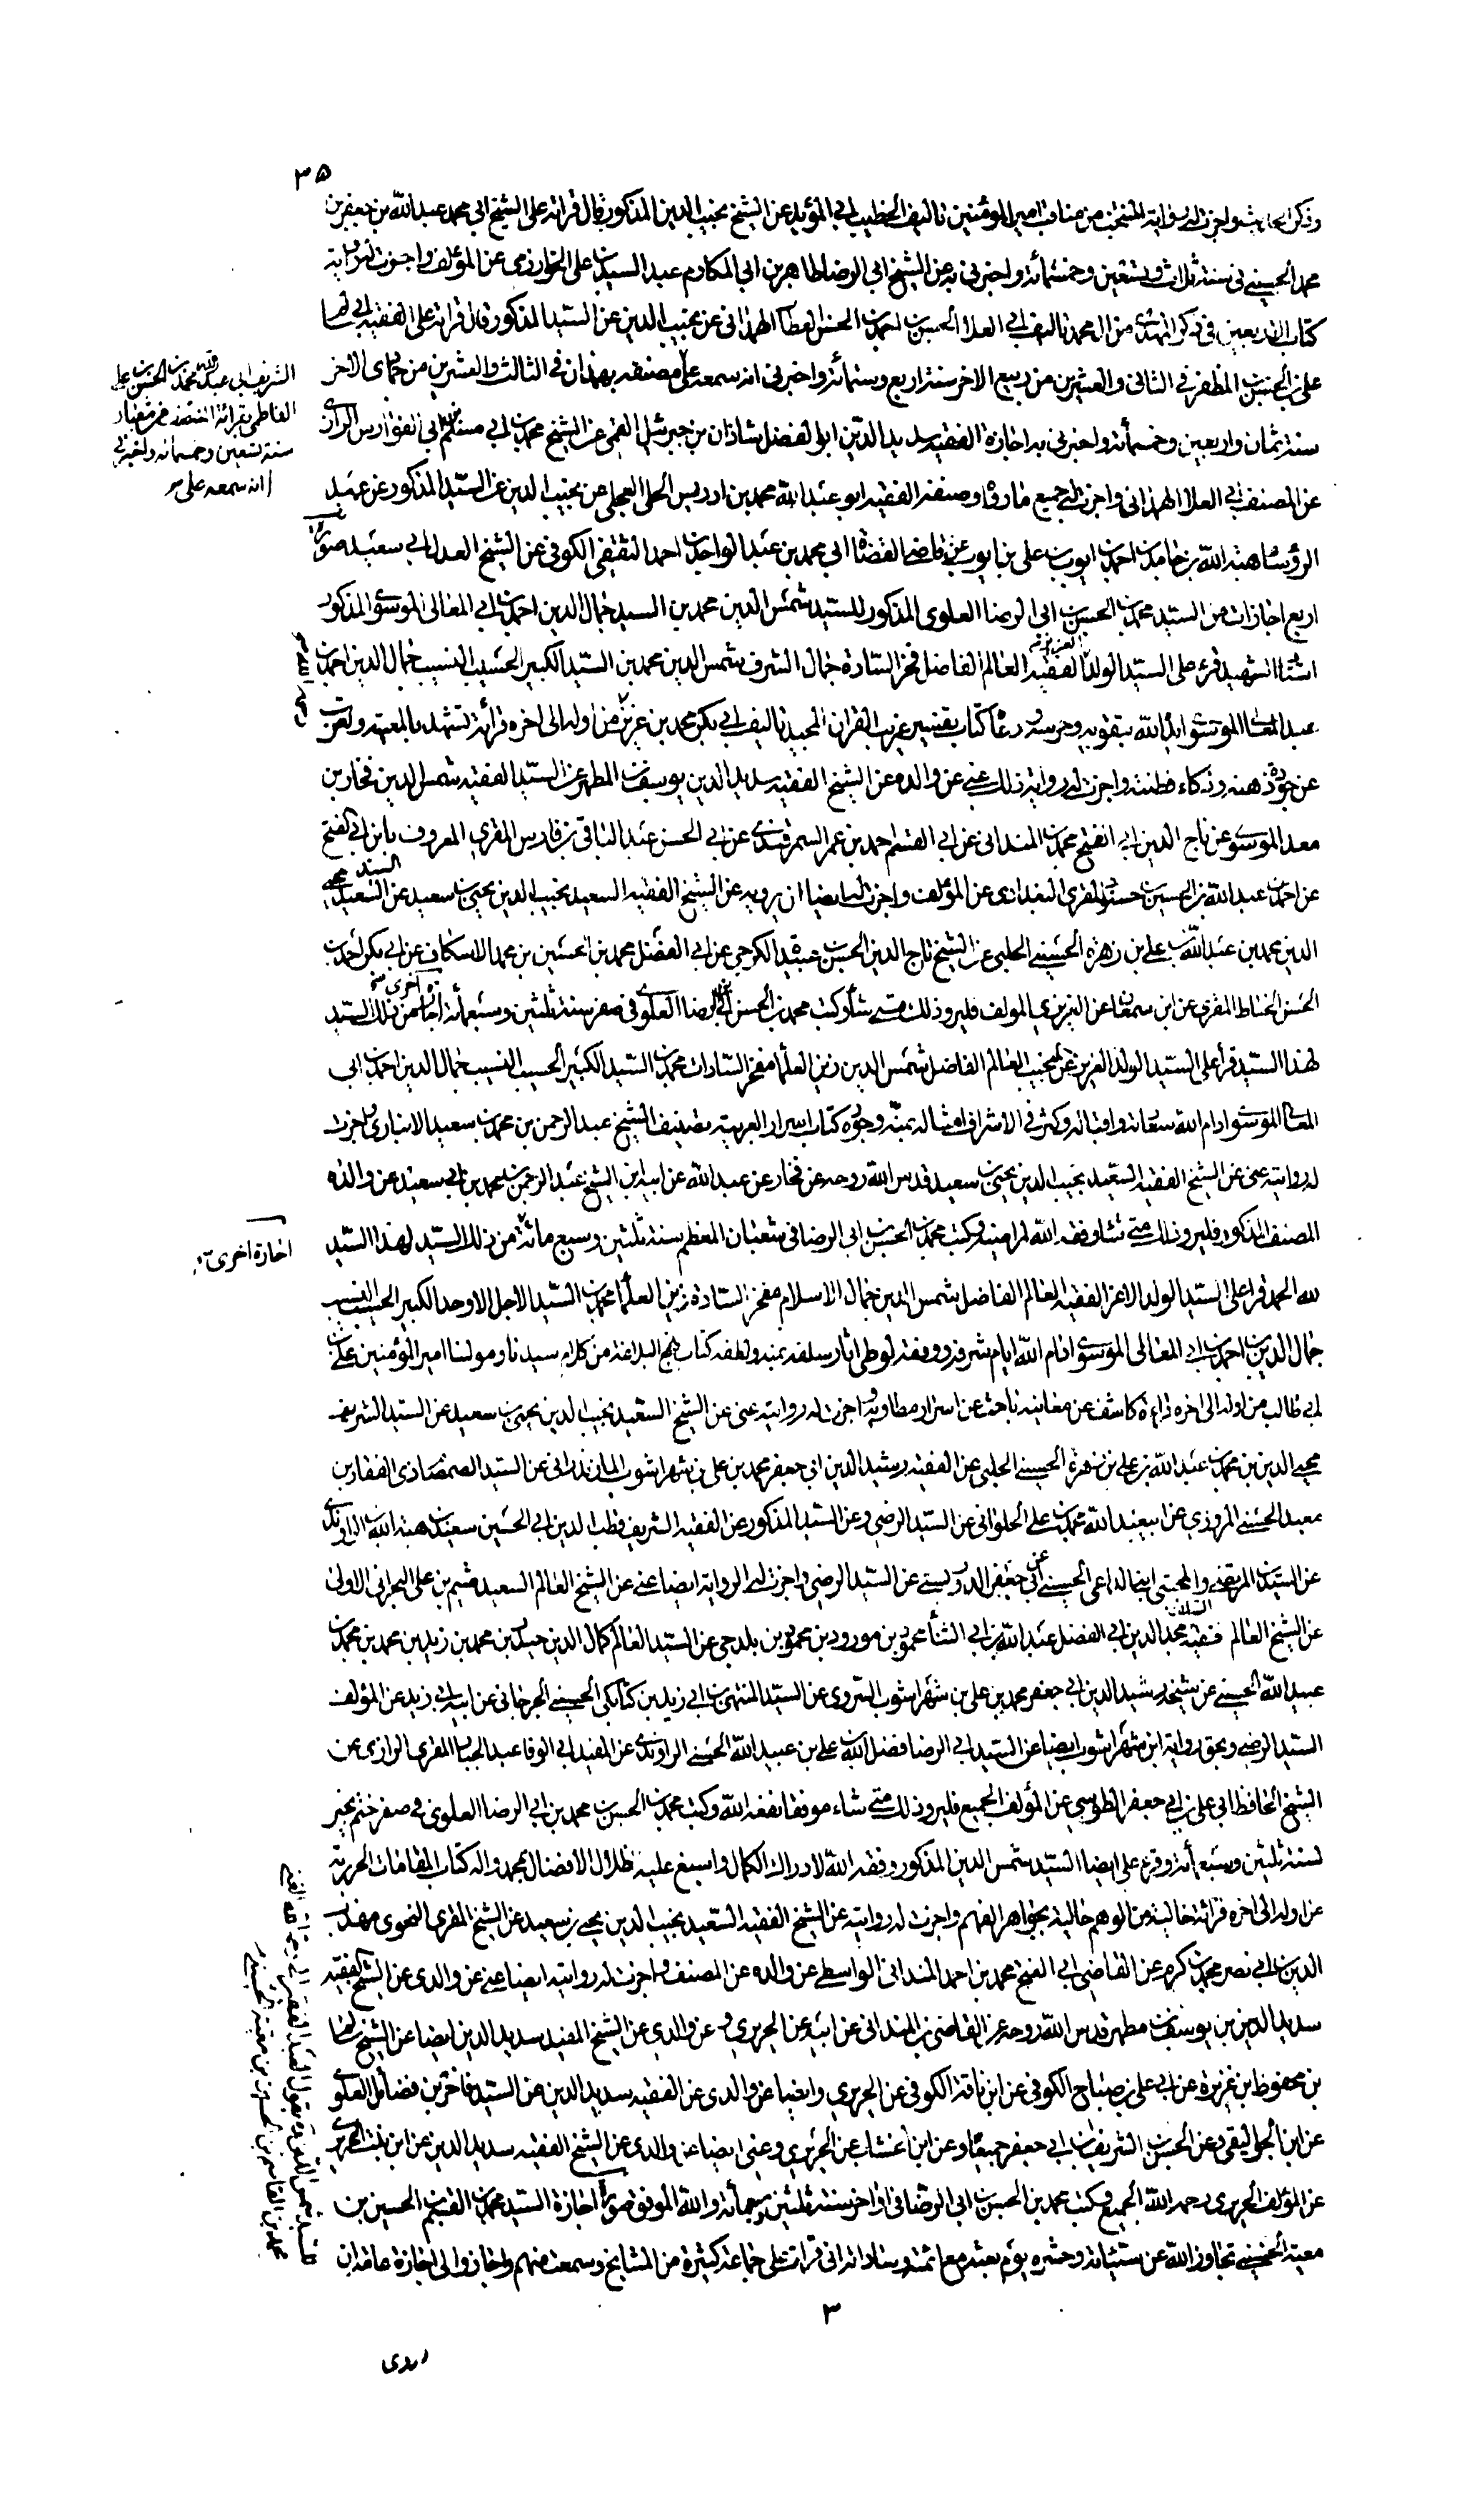 ٣٥
وذكر انه واجزت له رواية المنتخب من مناقب امير المؤمنين تاليف الخطيب ابي المؤيد عن الشيخ نجيب الدين المذكور قال قراته على الشيخ ابي محمد عبد الله بن جعفر بن
محمد الحسيني في سنة ثلاث وتسعين وخمسمائة واخبرني به عن الشيخ ابي الرضا طاهر بن ابي المكارم عبد السيد بن علي الخوارزمي عن المؤلف واجزت له رواية
كتاب الاربعين في ذكر المهدي من ال محمد تاليف ابي العلا الحسن بن احمد بن الحسن العطار الهمداني عن نجيب الدين عن السيد المذكور قال قراته على الفقيه
علي بن الحسين المظفر في الثاني والعشرين من ربيع الاخر سنة اربع وستمائة واخبرني انه سمعه على مصنفه بهمدان في الثالث والعشرين من جمادى الاخر
سنة ثمان واربعين وخمسمائة واخبرني به اجازة الفقيه سديد الدين ابو الفضل شاذان بن جبرئيل القمي عن الشيخ محمد بن ابي مسلم بن ابي الفوارس الرازي
عن المصنف ابي العلا الهمداني واجزت له جميع ما رواه وصنفه الفقيه ابو عبد الله محمد بن ادريس الحلي العجلي عن نجيب الدين عن السيد المذكور عن عميد
الرؤساء هبة الله بن حامد بن احمد بن ايوب بن علي بن ايوب عن قاضي القضاة ابي محمد بن عبد الواحد بن احمد الثقفي الكوفي عن الشيخ العدل ابي سعيد صورة
اربع اجازات من السيد محمد بن الحسن بن ابي الرضا العلوي المذكور للسيد شمس الدين محمد بن السيد جمال الدين احمد بن ابي المعالي الموسوي المذكور
استاد الشهيد قرء على السيد الولد العزيز الفقيه العالم الفاضل فخر السادة جمال الشرف شمس الدين محمد بن السيد الكبير الحسيب النسيب جمال الدين احمد بن
ابي المعالي الموسوي ايد الله بتقويه وحرسه ورعاه كتاب تفسير غريب القران المجيد تاليف ابي بكر محمد بن عزيز من اوله الى اخره قراءة تشهد بالمعيته وتعرب
عن جودة ذهنه وذكاء فطنته واجزت له رواية ذلك عني عن والده عن الشيخ الفقيه سديد الدين يوسف بن المطهر عن السيد الفقيه شمس الدين فخار بن
معد الموسوي عن تاج الدين ابي الفتح محمد بن المنداني عن ابي القسم احمد بن عمر السمرقندي عن ابي الحسن عبد الباقي بن فارس المقري المعروف بابن ابي الفتح
عن احمد بن عبد الله بن الحسين بن حسنون المقري البغدادي عن المؤلف واجزت له ايضا ان يرويه عن الشيخ الفقيه السعيد نجيب الدين يحيى بن سعيد عن السيد السعيد محيي
الدين محمد بن عبد الله بن علي بن زهرة الحسيني الحلبي عن الشيخ تاج الدين الحسن بن الكرخي عن ابي الفضل محمد بن الحسين بن محمد الاسكاف عن ابي بكر احمد بن
الحسن الخياط المقري عن ابن سمعان عن العزيزي المولف فليرو ذلك متى شاء وكتب محمد بن الحسن بن ابي الرضا العلوي في صفر سنة ثلثين وسبعمائة اجازة اخرى من ذلك السيد
لهذا السيد قرأ علي السيد الولد العزيز النجيب العالم الفاضل شمس الدين زين العلما مفخر السادات محمد بن السيد الكبير الحسيب النسيب جمال الدين احمد بن ابي
المعالي الموسوي ادام الله سعادته واقباله وكثر في الاشراف امثاله بمنه وجوده كتاب اسرار العربية تصنيف الشيخ عبد الرحمن بن محمد بن سعيد الانباري واجزت
له روايته عني عن الشيخ الفقيه السعيد نجيب الدين يحيى بن سعيد قدس الله روحه عن فخار عن عبد الله عن ابيه ابن الشيخ عبد الرحمن بن محمد بن ابي سعيد عن والده
المصنف المذكور فليرو ذلك متى شاء وفقه الله لمراضيه وكتب محمد بن الحسن بن ابي الرضا في شعبان المعظم سنة ثلثين وسبع مائة من ذلك السيد لهذا السيد
لله الحمد قرأ علي السيد الولد الاعز الفقيه العالم الفاضل شمس الدين جمال الاسلام مفخر السادة زين العلما محمد بن السيد الاجل الاوحد الكبير الحسيب النسيب
جمال الدين احمد بن ابي المعالي الموسوي ادام الله ايام شرفه ووفقه لوطي اثار سلفه بمنه ولطفه كتاب نهج البلاغة من كلام سيدنا ومولنا امير المؤمنين علي بن
ابي طالب من اوله الى اخره قراءة كاشفة عن معانيه باحثة عن اسرار مطاويه واجزت له روايته عني عن الشيخ السعيد نجيب الدين يحيى بن سعيد عن السيد الشريف
محيي الدين بن محمد بن عبد الله بن علي بن زهرة الحسيني الحلبي عن الفقيه رشيد الدين ابي جعفر محمد بن علي بن شهراشوب المازندراني عن السيد الصمصام ذي الفقار بن
معبد الحسني المروزي عن ابي عبد الله محمد بن علي الحلواني عن السيد الرضي وعن السيد المذكور عن الفقيه الشريف قطب الدين ابي الحسين سعيد بن هبة الله الراوندي
عن السيدين المرتضى والمجتبى ابني الداعي الحسيني عن ابي جعفر الدوريستي عن السيد الرضي واجزت له الرواية ايضا عني عن الشيخ العالم السعيد ميثم بن علي البحراني الاوالي
عن الشيخ العالم فقيه مجد الدين ابي الفضل عبد الله بن ابي الثناء محمود بن مودود بن محمود بن بلدجي عن السيد العالم كمال الدين حيدر بن محمد بن زيد بن محمد بن محمد بن
عبيد الله الحسيني عن شيخه رشيد الدين ابي جعفر محمد بن علي بن شهراشوب السروي عن السيد المنتهى بن ابي زيد بن كيابكي الحسيني الجرجاني عن ابيه ابي زيد عن المؤلف
السيد الرضي وبحق رواية ابن شهراشوب ايضا عن السيد ابي الرضا فضل الله بن علي بن عبيد الله الحسني الراوندي عن المفيد ابي الوفا عبد الجبار المقري الرازي عن
الشيخ الحافظ ابي علي بن ابي جعفر الطوسي عن المؤلف الجميع فليرو ذلك متى شاء موفقا نفعه الله وكتب محمد بن الحسن بن محمد بن ابي الرضا العلوي في صفر ختم بخير
لسنة ثلثين وسبعمائة وقرء علي ايضا السيد شمس الدين المذكور وفقه الله لادراك الكمال واسبغ عليه ظلال الافضال بمحمد واله كتاب المقامات الحريرية
من اوله الى اخره قراءة خالية من الوهم حالية بجواهر الفهم واجزت له روايته عن الشيخ الفقيه السعيد نجيب الدين يحيى بن سعيد عن الشيخ المقري النحوي مهذب
الدين ابي نصر محمد بن كرم عن القاضي ابي الفتح محمد بن احمد المنداني الواسطي عن والده عن المصنف واجزت له روايته ايضا عني عن والدي عن الشيخ الفقيه
سديد الدين بن يوسف بن مطهر قدس الله روحه عن القاضي بن المنداني عن ابيه عن الحريري وعن والدي عن الشيخ المفيد سديد الدين ايضا عن الشيخ سالم
بن محفوظ بن عزيزة عن ابي علي بن صباح الكوفي عن ابن ناقة الكوفي عن الحريري وايضا عن والدي عن الفقيه سديد الدين عن السيد فاخر بن فضائل العلوي
عن ابن الجواليقي وعن الحسن بن الشريف بن ابي جعفر جميعا وعن ابن الخشاب عن الحريري وعني ايضا عن والدي عن الشيخ الفقيه سديد الدين عن ابن بنت الحريري
عن المؤلف الحريري رحمه الله الجميع وكتب محمد بن الحسن بن ابي الرضا في اواخر سنة ثلثين وسبعمائة والله الموفق صورة اجازة السيد محمد بن القسم الحسين بن
معية الحسني تجاوز الله عن سيئاته وحشره يوم يبعثه مع ائمته وساداته اني قرات على جماعة كثيرة من المشايخ وسمعت منهم واجازوا لي اجازة عامة
٣
الشريف ابي عبد الله محمد بن الحسن بن علي
الفاطمي بقرائة
سنة تسعين وخمسمائة واخبرني
انه سمعه على
اجازة اخرى